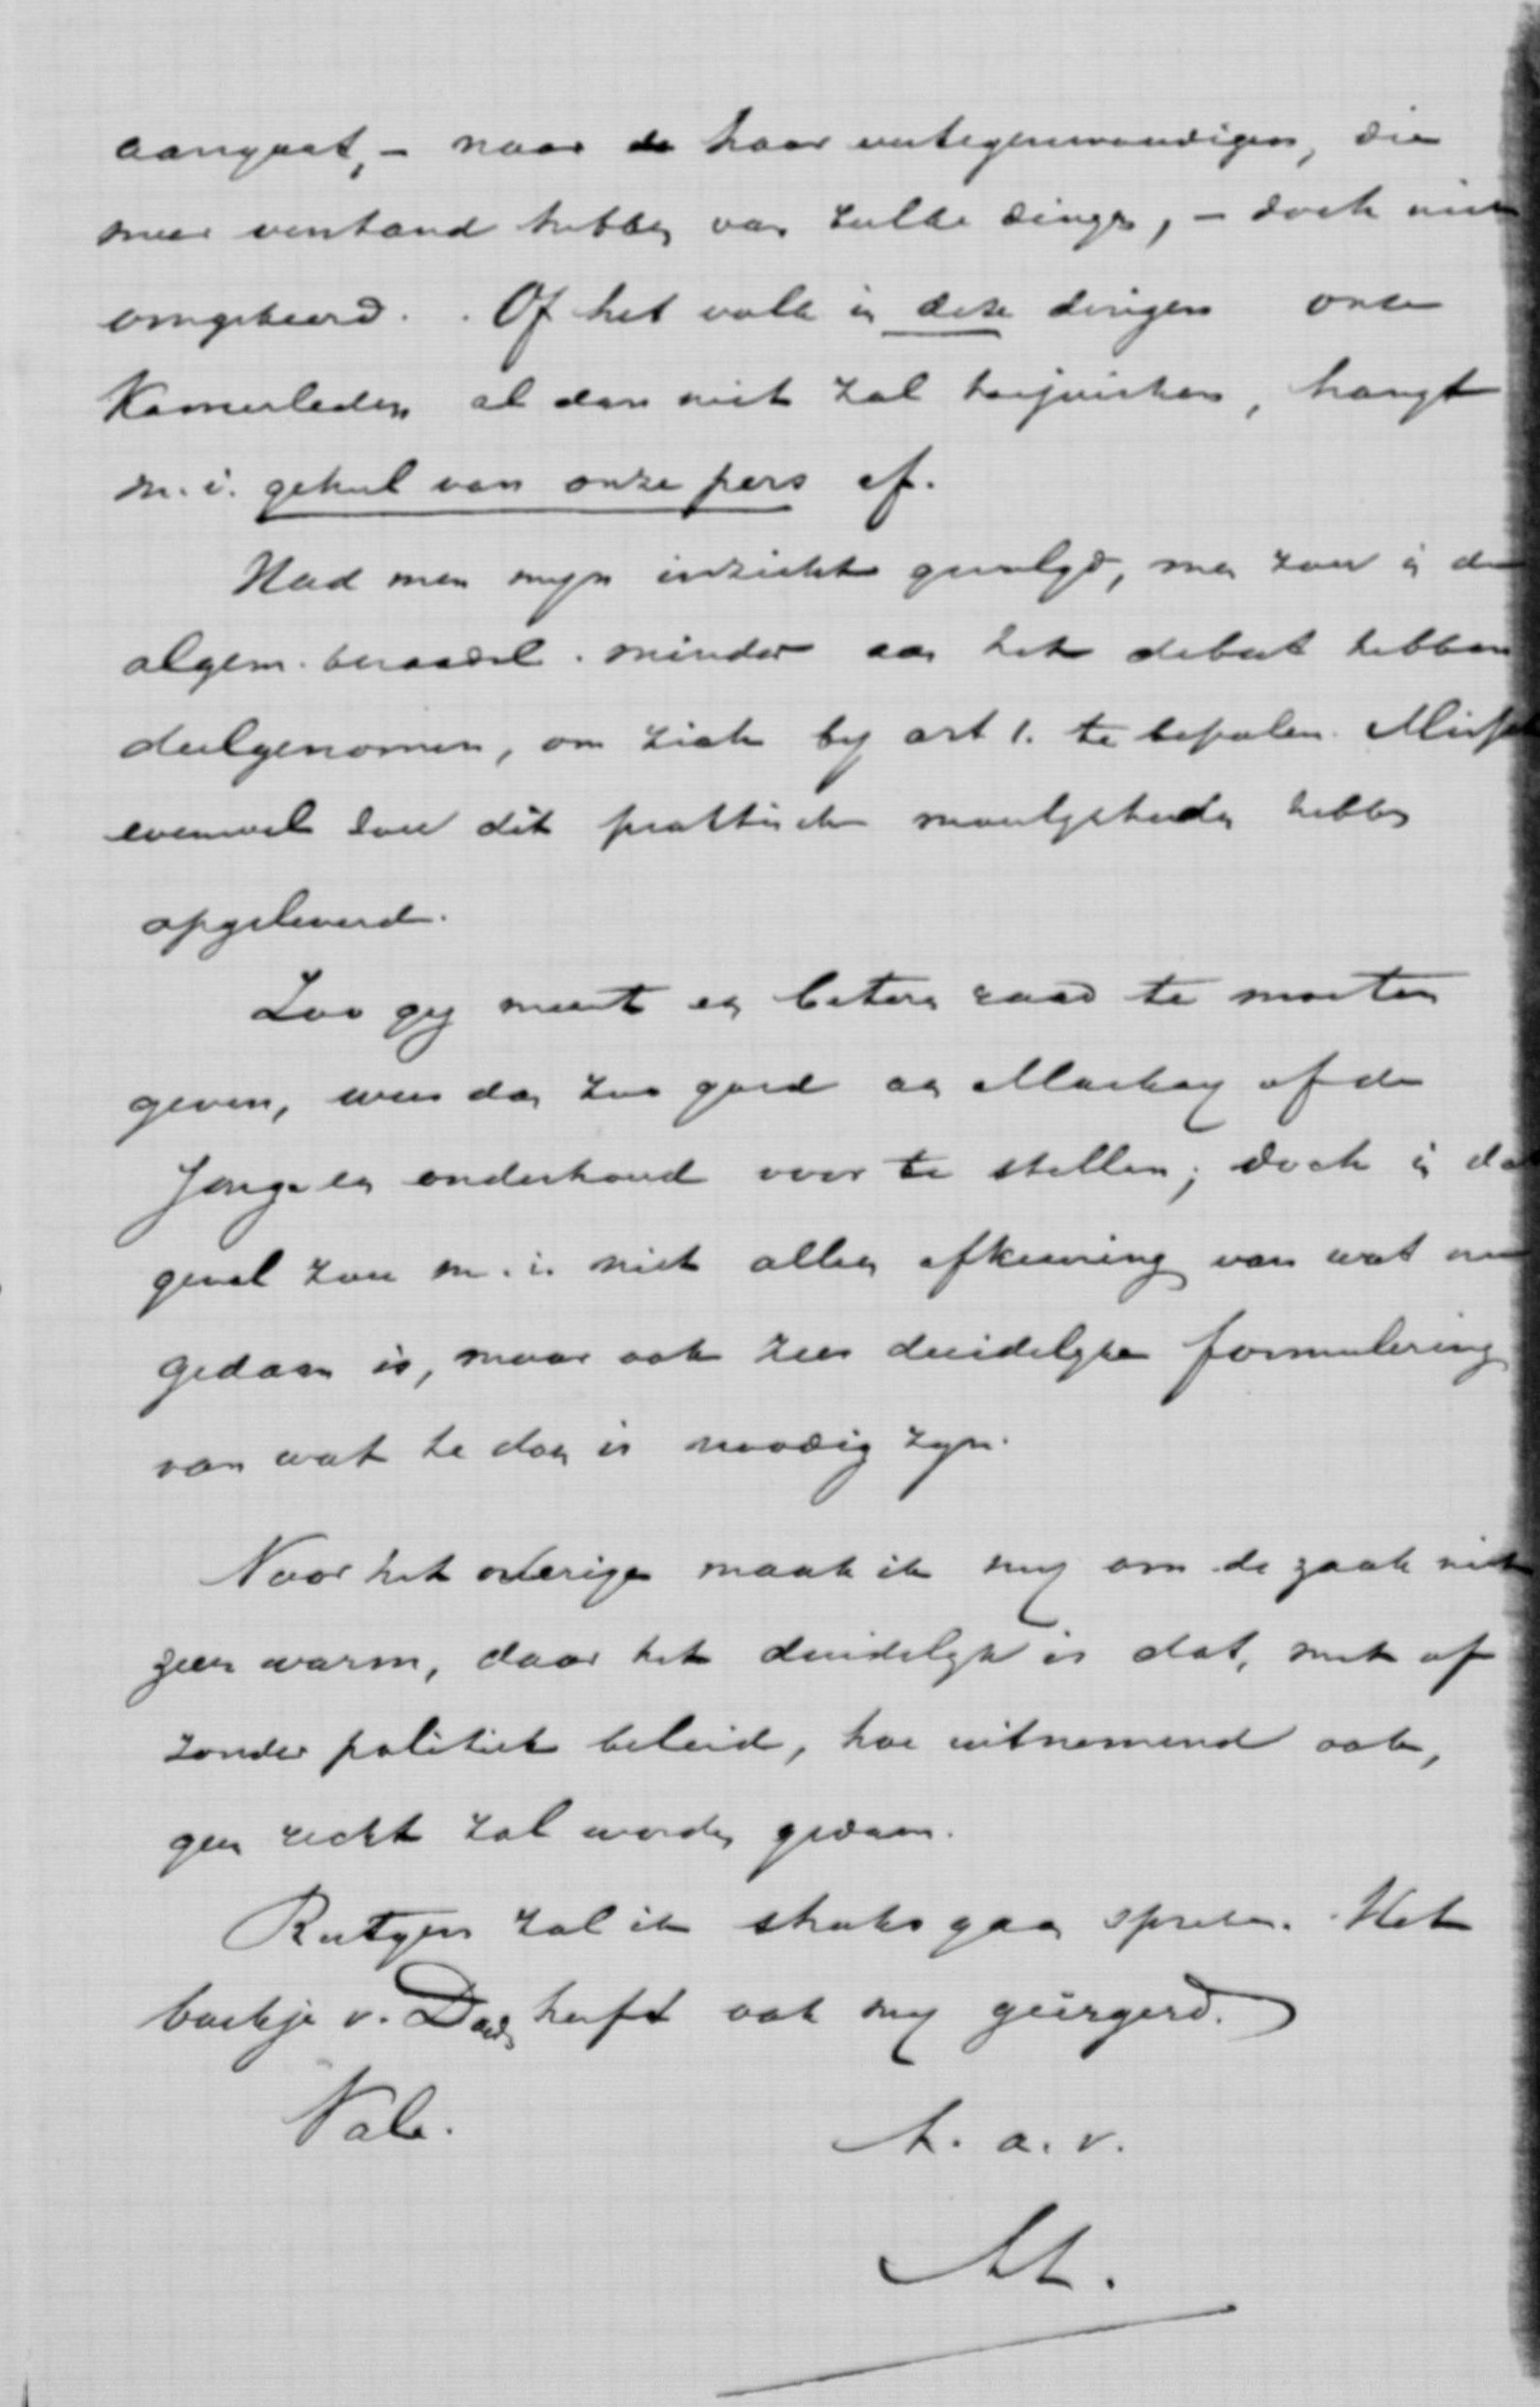 aangaat, – naar de haar vertegenwoordigers, die
meer verstand hebben van zulke dingen, – doch niet
omgekeerd. Of het volk in deze dingen onze
Kamerleden al dan niet zal toejuichen, hangt
m. i. geheel van onze pers af.
Had men myn inzicht gevolgd, men zou in de
algem. beraadsl. minder aan het debat hebben
deelgenomen, om zich by art 1. te bepalen.
evenwel zou dit praktische moeilykheden hebben
opgeleverd.
Zoo gy meent een beteren raad te moeten
geven, wees dan zoo goed aan Mackay of de
Jonge een onderhoud voor te stellen; doch in dat
geval zou m. i. niet alleen afkeuring van wat nu
gedaan is, maar ook zeer duidelyke formulering
van wat te doen is noodig zyn.
Voor het overige maak ik my om de zaak niet
zeer warm, daar het duidelyk is dat, met of
zonder politiek beleid, hoe uitnemend ook,
geen recht zal worden gedaan.
Rutgers zal ik straks gaan spreken. Het
boekje v. heeft ook my geërgerd.
Vale.
t. a. v.